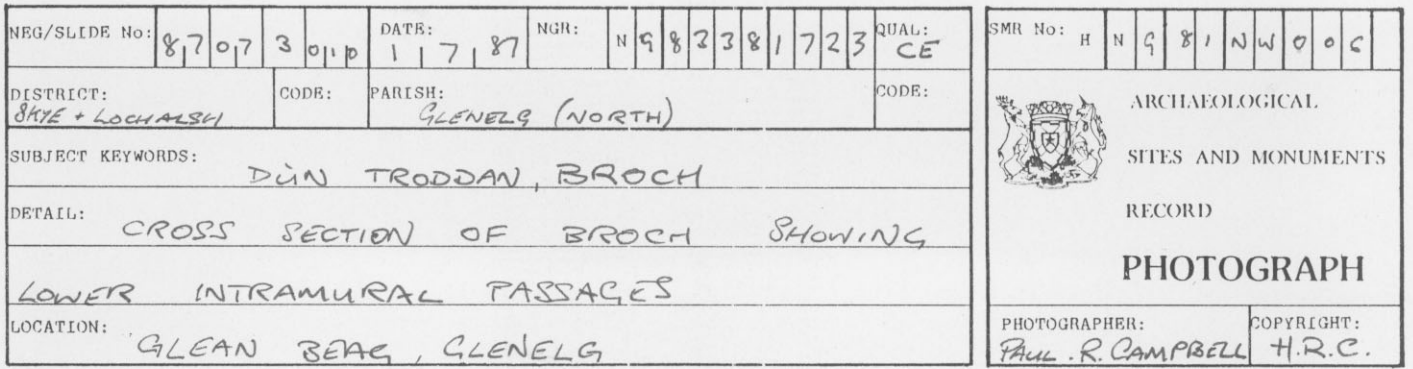 NEG/SLIDE No: 8707 30.10 DATE: 1 7 87 NGR: NG83381723 QUAL: CE
DISTRICT: SKYE + LOCHALSH CODE: PARISH: GLENELG (NORTH) CODE:
SUBJECT KEYWORDS: DÙN TRODDAN, BROCH
DETAIL: CROSS SECTION OF BROCH SHOWING
LOWER INTRAMURAL PASSAGES
LOCATION: GLEAN BEAG, GLENELG
SMR No: H NG81NW006
ARCHAEOLOGICAL
SITES AND MONUMENTS
RECORD
PHOTOGRAPH
PHOTOGRAPHER: COPYRIGHT:
PAUL. R. CAMPBELL H.R.C.